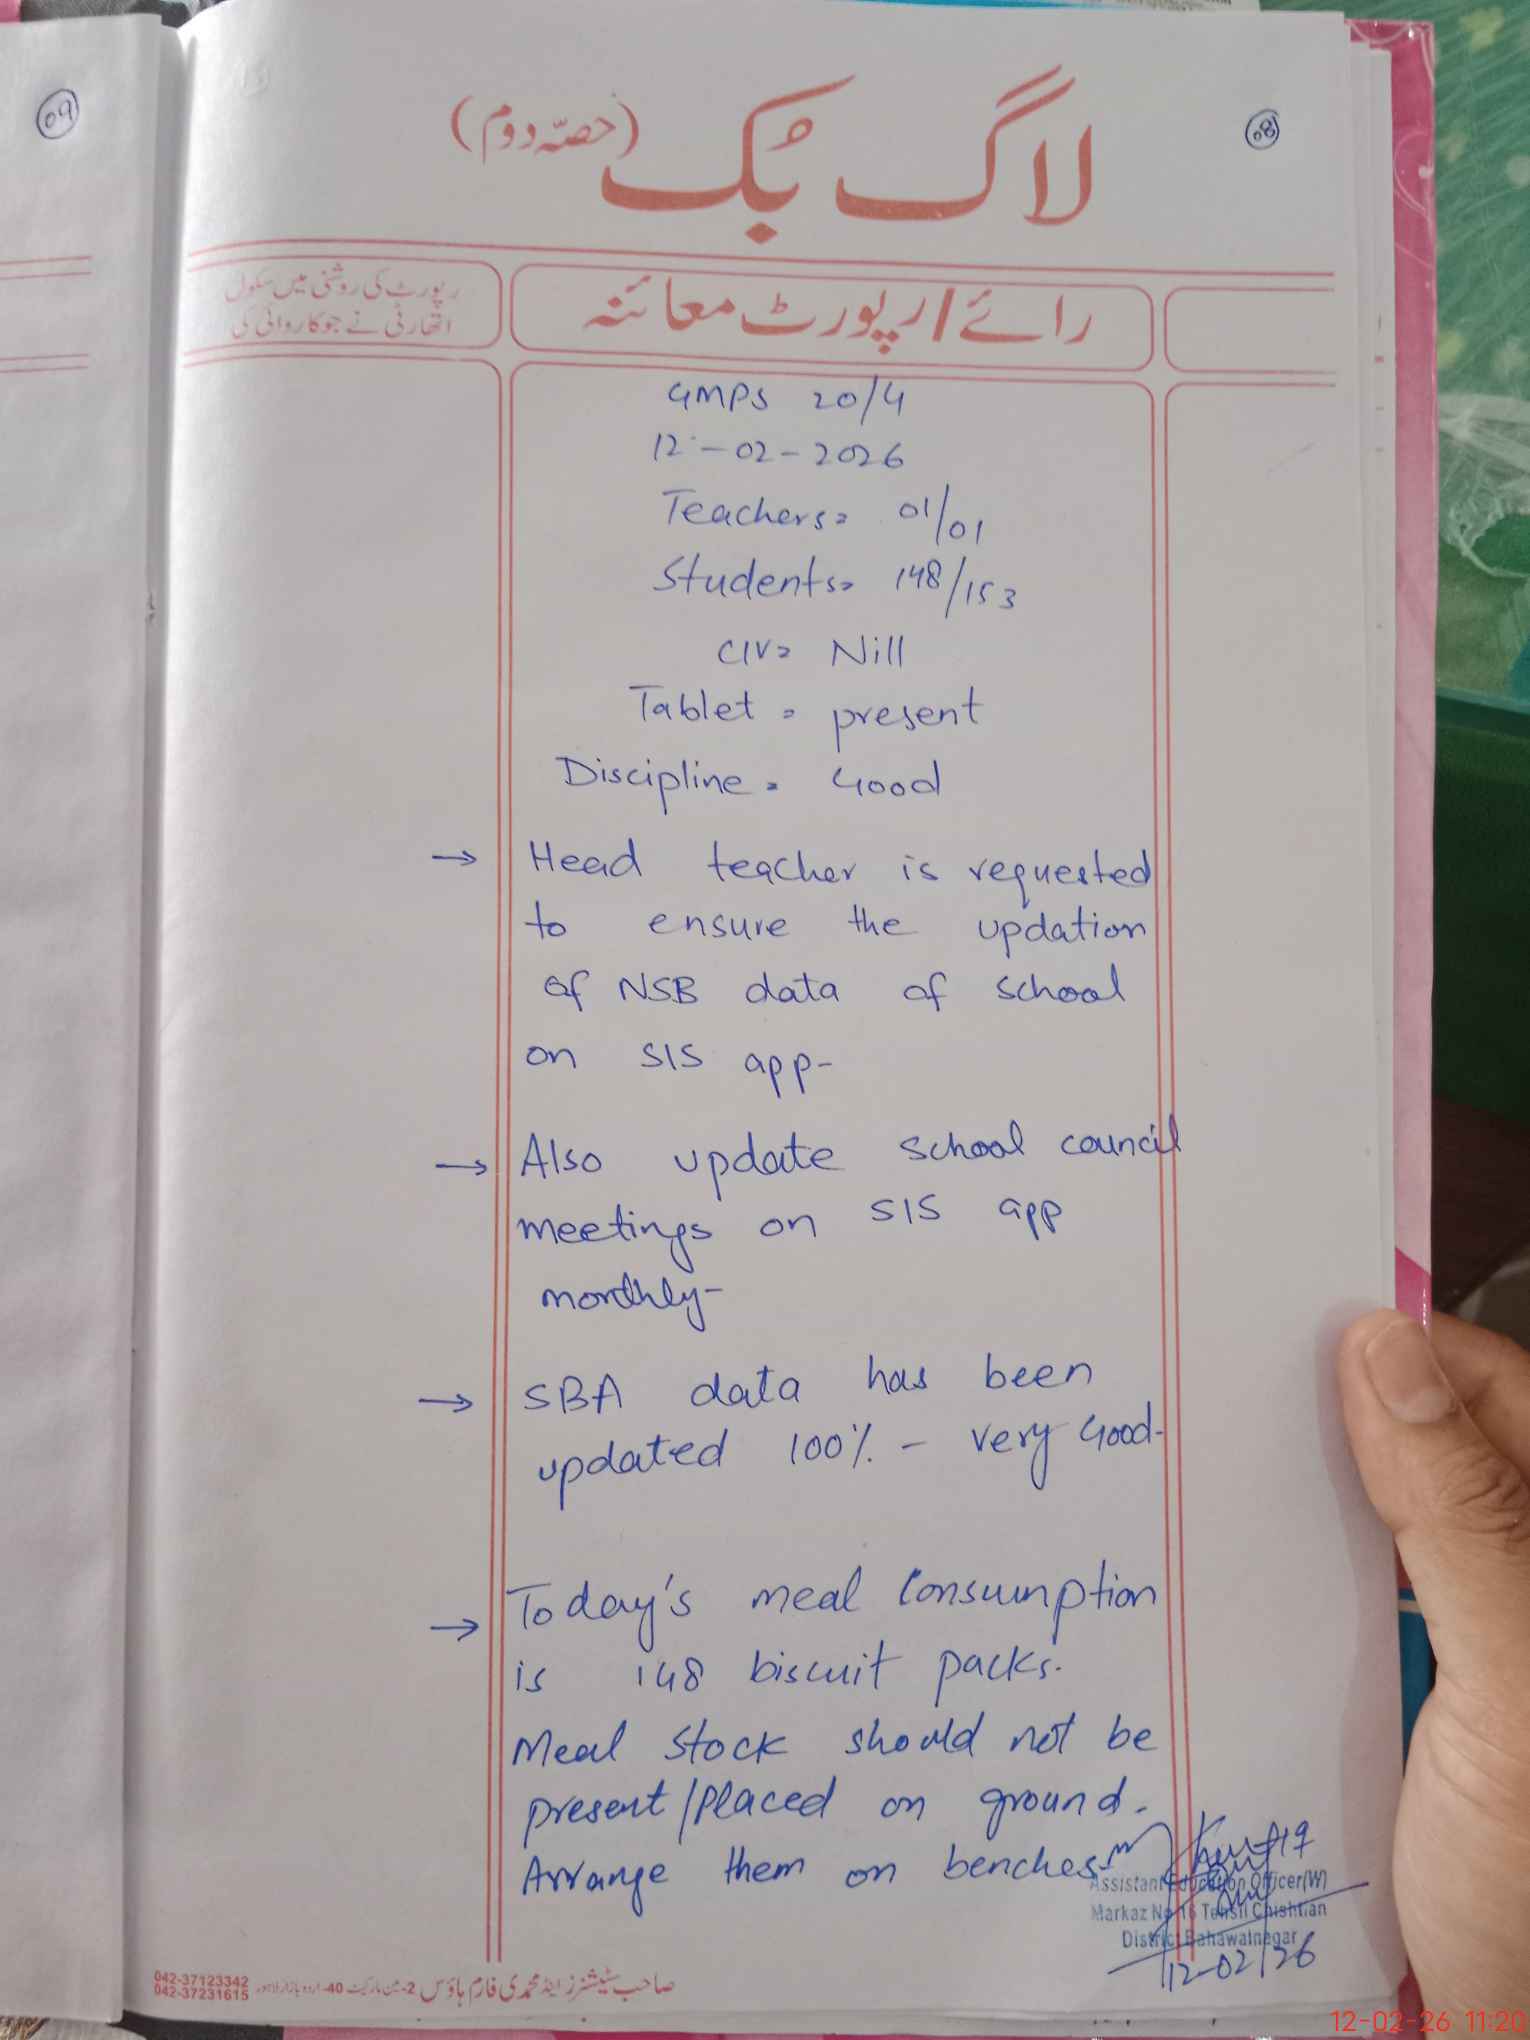 09
08
لاگ بُک (حصّہ دوم)
رپورٹ کی روشنی میں سکول
اتھارٹی نے جو کاروائی کی
رائے/رپورٹ معائنہ
GMPS 20/4
12-02-2026
Teachers= 01/01
Students= 148/153
CIV= Nill
Tablet = present
Discipline = Good
→ Head teacher is requested
to ensure the updation
of NSB data of school
on SIS app-
→ Also update school council
meetings on SIS app
monthly-
→ SBA data has been
updated 100% - very Good-
→ Today's meal Consumption
is 148 biscuit packs.
Meal stock should not be
present/placed on ground.
Arrange them on benches
Assistant Education Officer(W)
Markaz No 16 Tehsil Chishtian
District Bahawalnagar
12-02/26
صاحب سٹیشنرز اینڈ محمدی فارم ہاؤس 2-مین مارکیٹ 40-اردو بازار لاہور
042-37123342
042-37231615
12-02-26 11:20